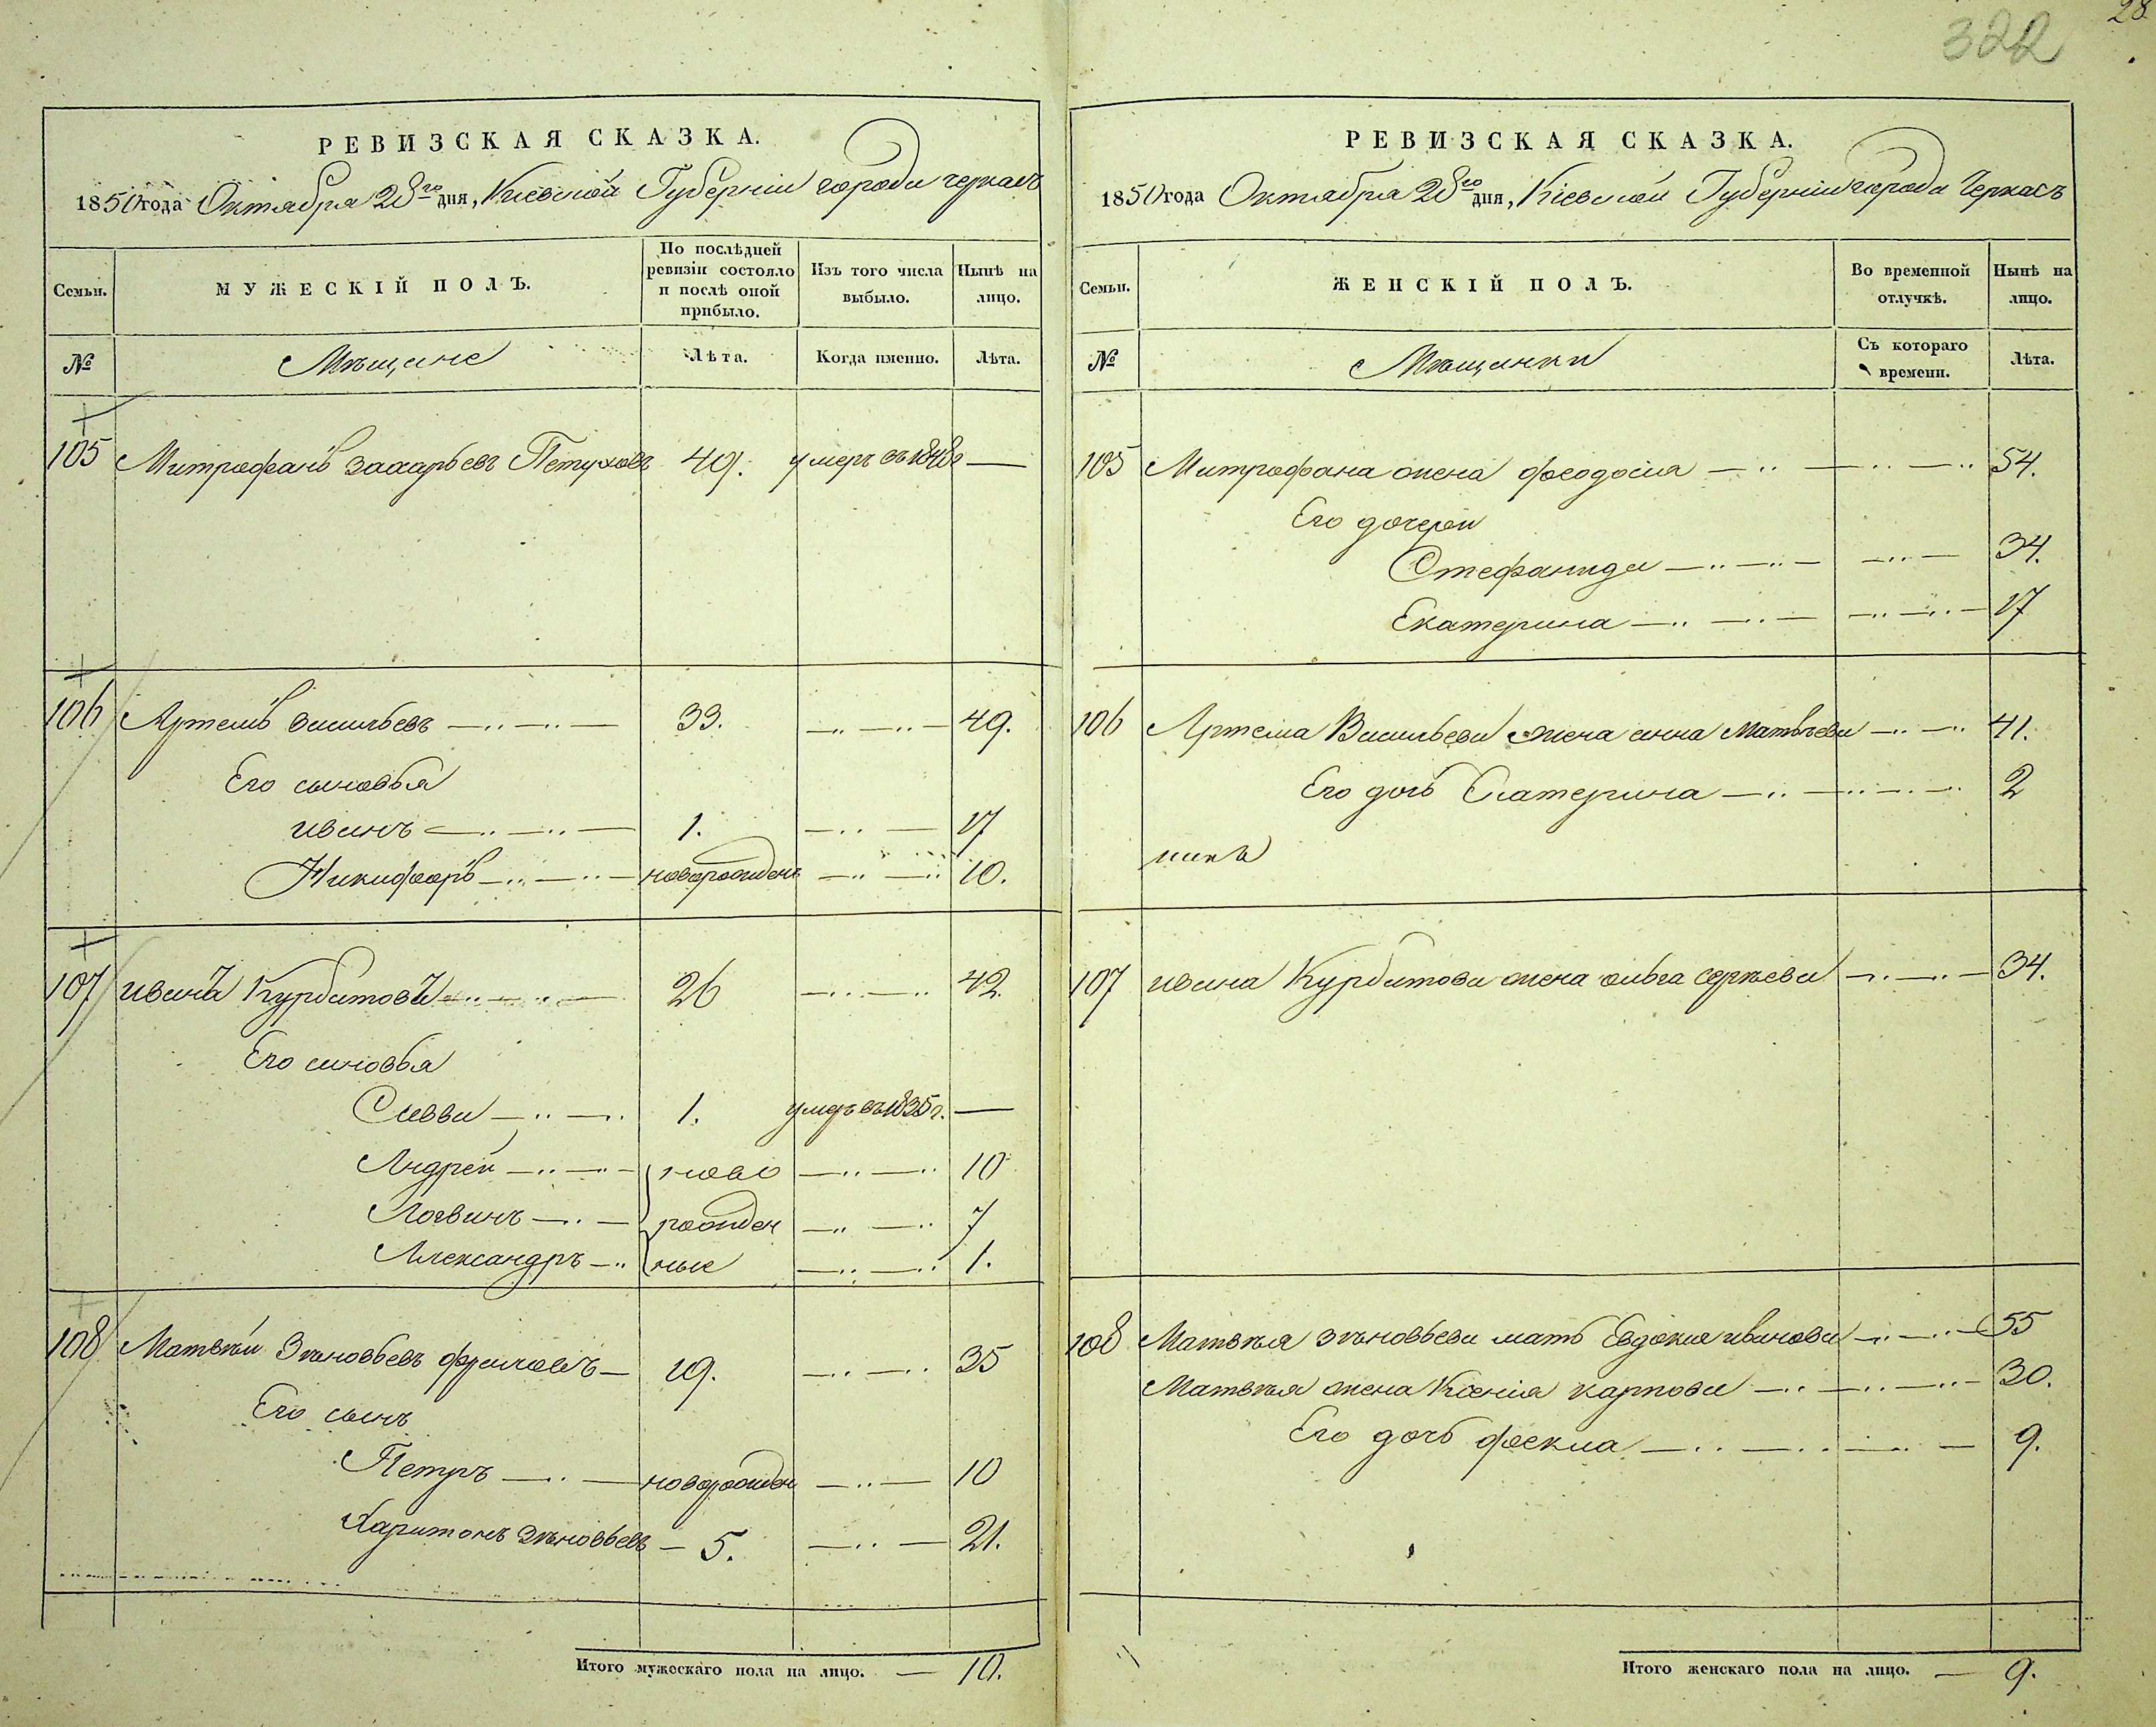 28
322
РЕВИЗСКАЯ СКАЗКА.
1850 года Октября 28го дня, Киевской Губерніи города черкасъ
Семьи. МУЖЕСКІЙ ПОЛЪ. По послѣдней ревизіи состояло и послѣ оной прибыло. Изъ того числа выбыло. Нынѣ на лицо.
№ Мѣщане Лѣта. Когда именно. Лѣта.
105 Митрофанъ захарьевъ Петуховъ 49. умеръ въ 1848г —
106 Артемъ васильевъ 33. 49.
Его сыновья
иванъ 1. 17
Никифоръ новорожденъ 10.
107 иванъ Курбатовъ 26 42.
Его сыновья
Савва 1. умеръ въ 1835 г. —
Андрей ново 10
Логвинъ рожден 7
Александръ ные 1.
108 Матвѣй Зѣновьевъ 19. 35
Его сынъ
Петръ новорожден 10
Харитонъ Зѣновьевъ 5. 21.
Итого мужескаго пола на лицо. — 10.
РЕВИЗСКАЯ СКАЗКА.
1850 года Октября 28го дня, Кіевской Губерніи города Черкасъ
Семьи. ЖЕНСКІЙ ПОЛЪ. Во временной отлучкѣ. Нынѣ на лицо.
№ Мѣщанки Съ котораго времени. Лѣта.
105 Митрофана жена феодосія 54.
Его дочери
Стефанида 34.
Екатерина 17
106 Артема Васильева жена анна Матвѣева 41.
Его дочь Екатерина 2
107 ивана Курбатова жена ольга сергѣева 34.
108 Матвѣя зѣновьева мать Евдокия иванова 55
Матвѣя жена Ксенія карпова 30.
Его дочь фекла 9.
Итого женскаго пола на лицо. — 9.